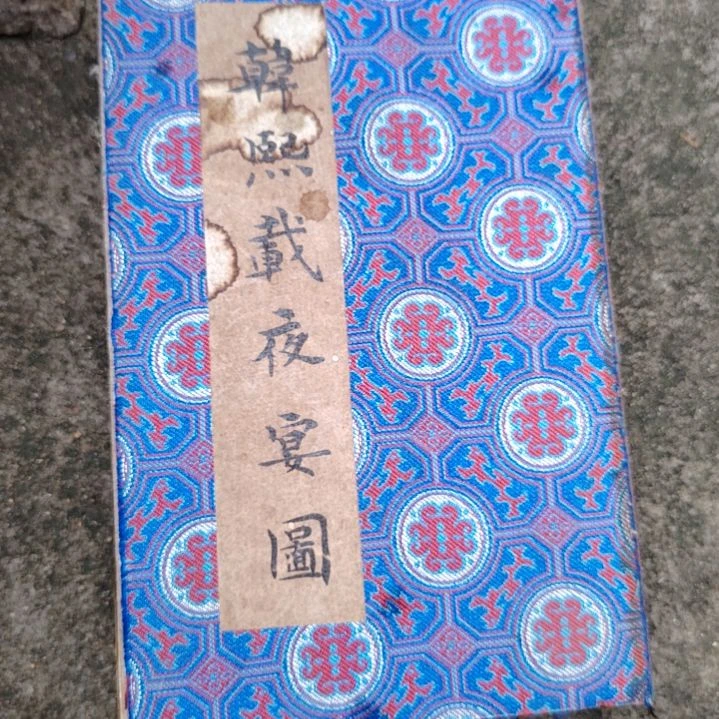 韓熙載夜宴圖